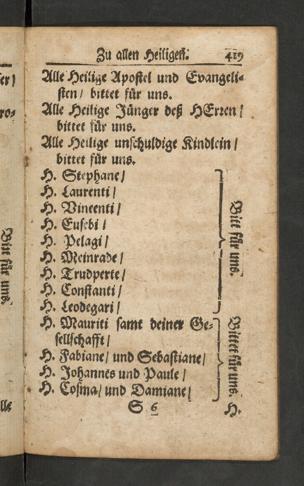 Zu allen Heiligen. 419
Alle Heilige Apostel und Evangeli-
sten / bittet für uns.
Alle Heilige Jünger deß HErren /
bittet für uns.
Alle Heilige unschuldige Kindlein /
bittet für uns.
H. Stephane /
H. Laurenti /
H. Vincenti /
H. Eusebi /
H. Pelagi /
H. Meinrade /
H. Trudperte /
H. Constanti /
H. Leodegari /
Bitt für uns.
H. Mauriti samt deiner Ge-
sellschafft /
H. Fabiane / und Sebastiane /
H. Johannes und Paule /
H. Cosma / und Damiane /
Bittet für uns.
S 6 H.
Bitt für uns.